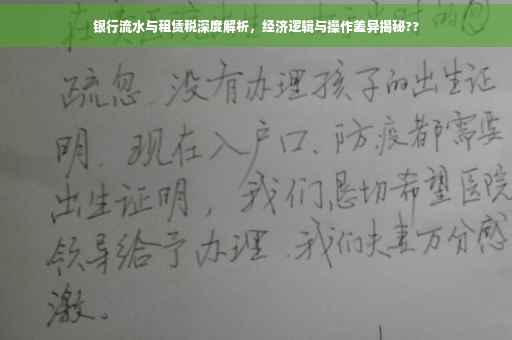 银行流水与租赁税深度解析，经济逻辑与操作差异揭秘??
疏忽、没有办理孩子的出生证
明。现在入户口、防疫都需要
出生证明，我们恳切希望医院
领导给予办理，我们夫妻万分感
激。